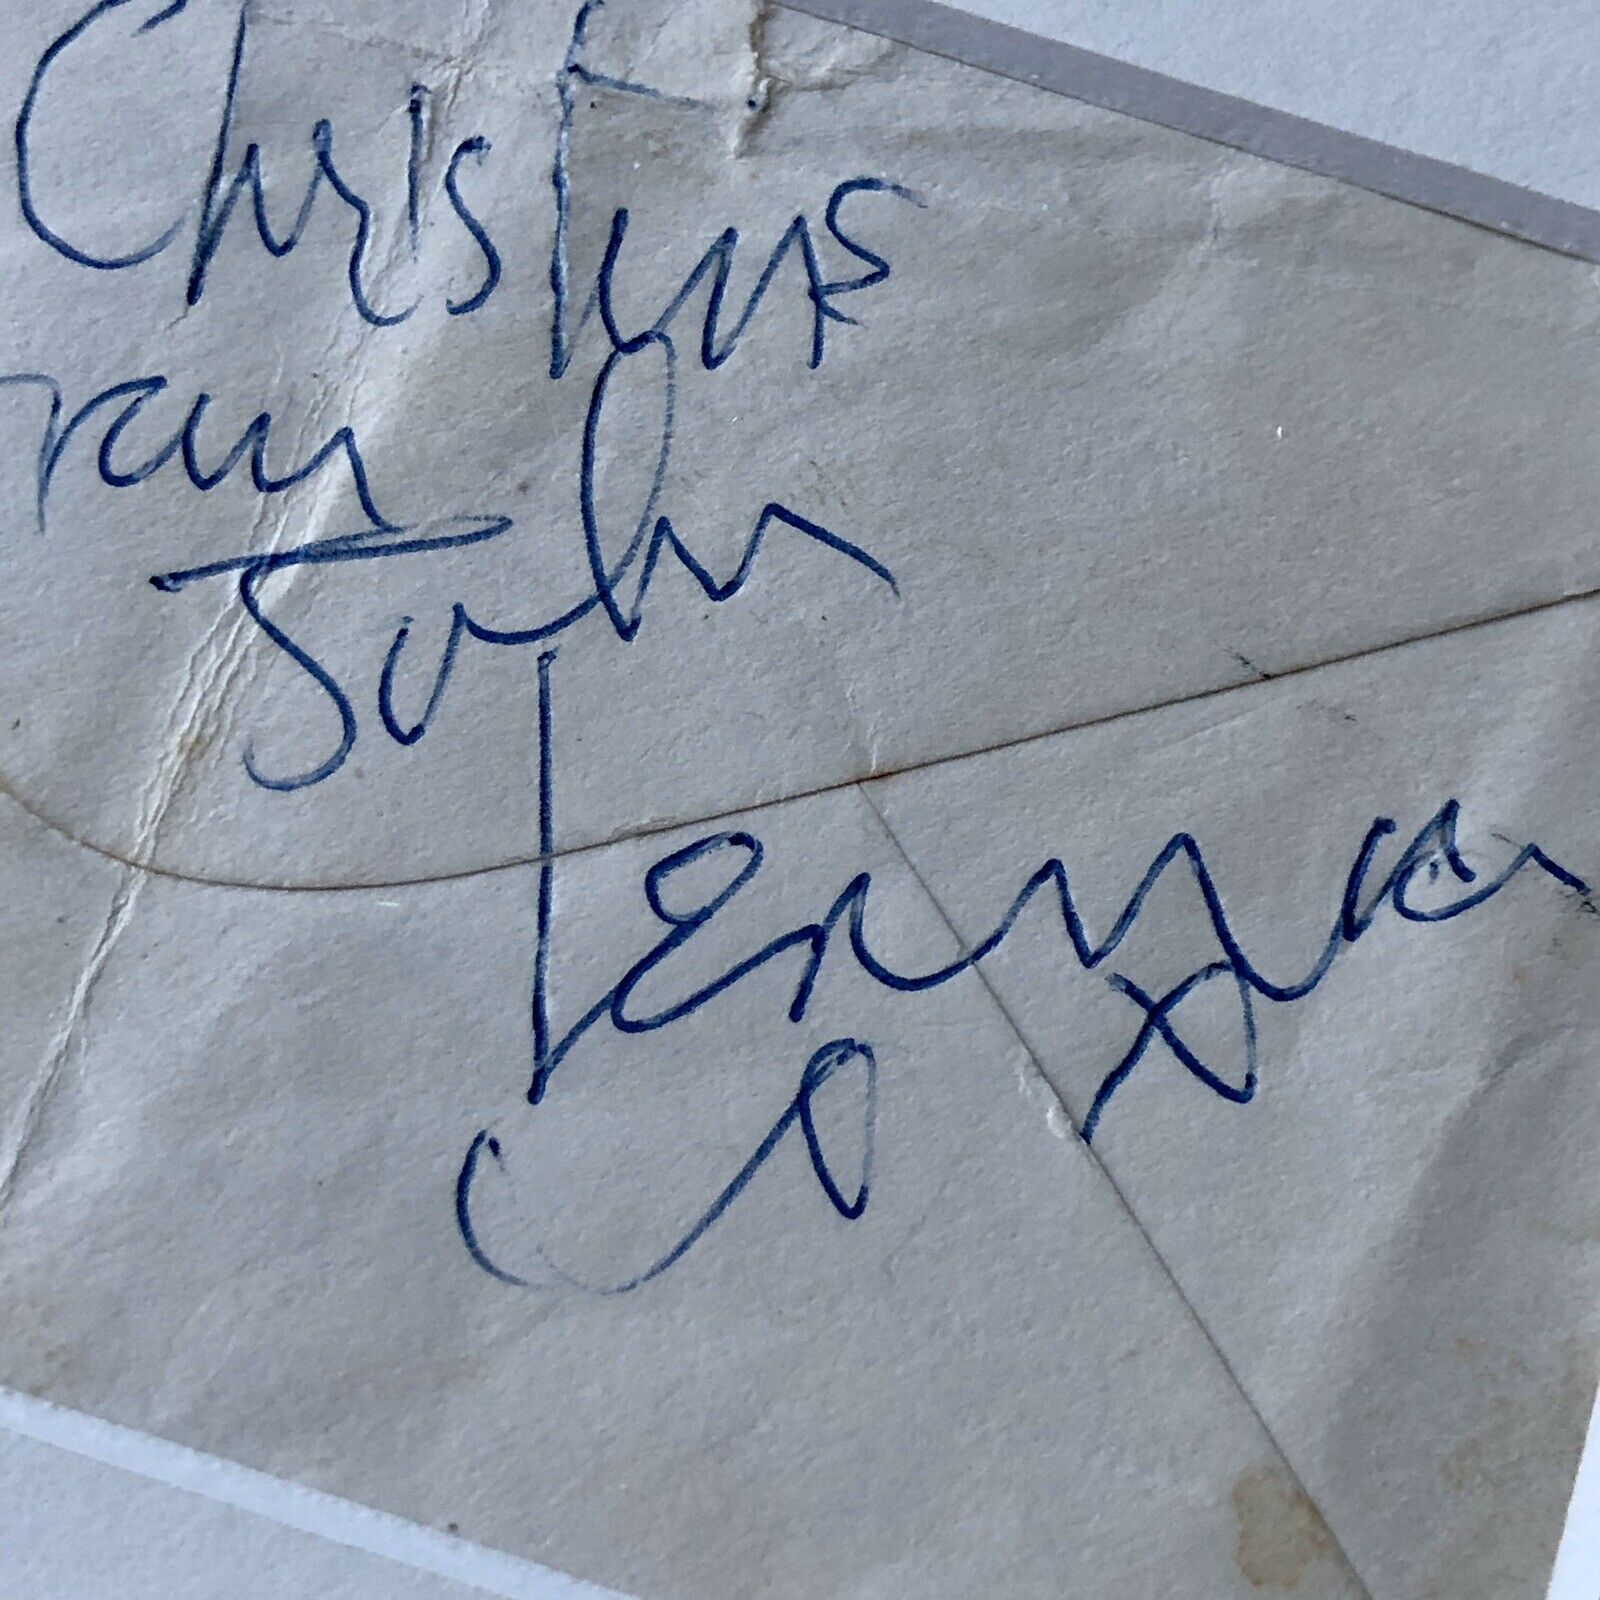 Christmas
from
John
Lennon
x